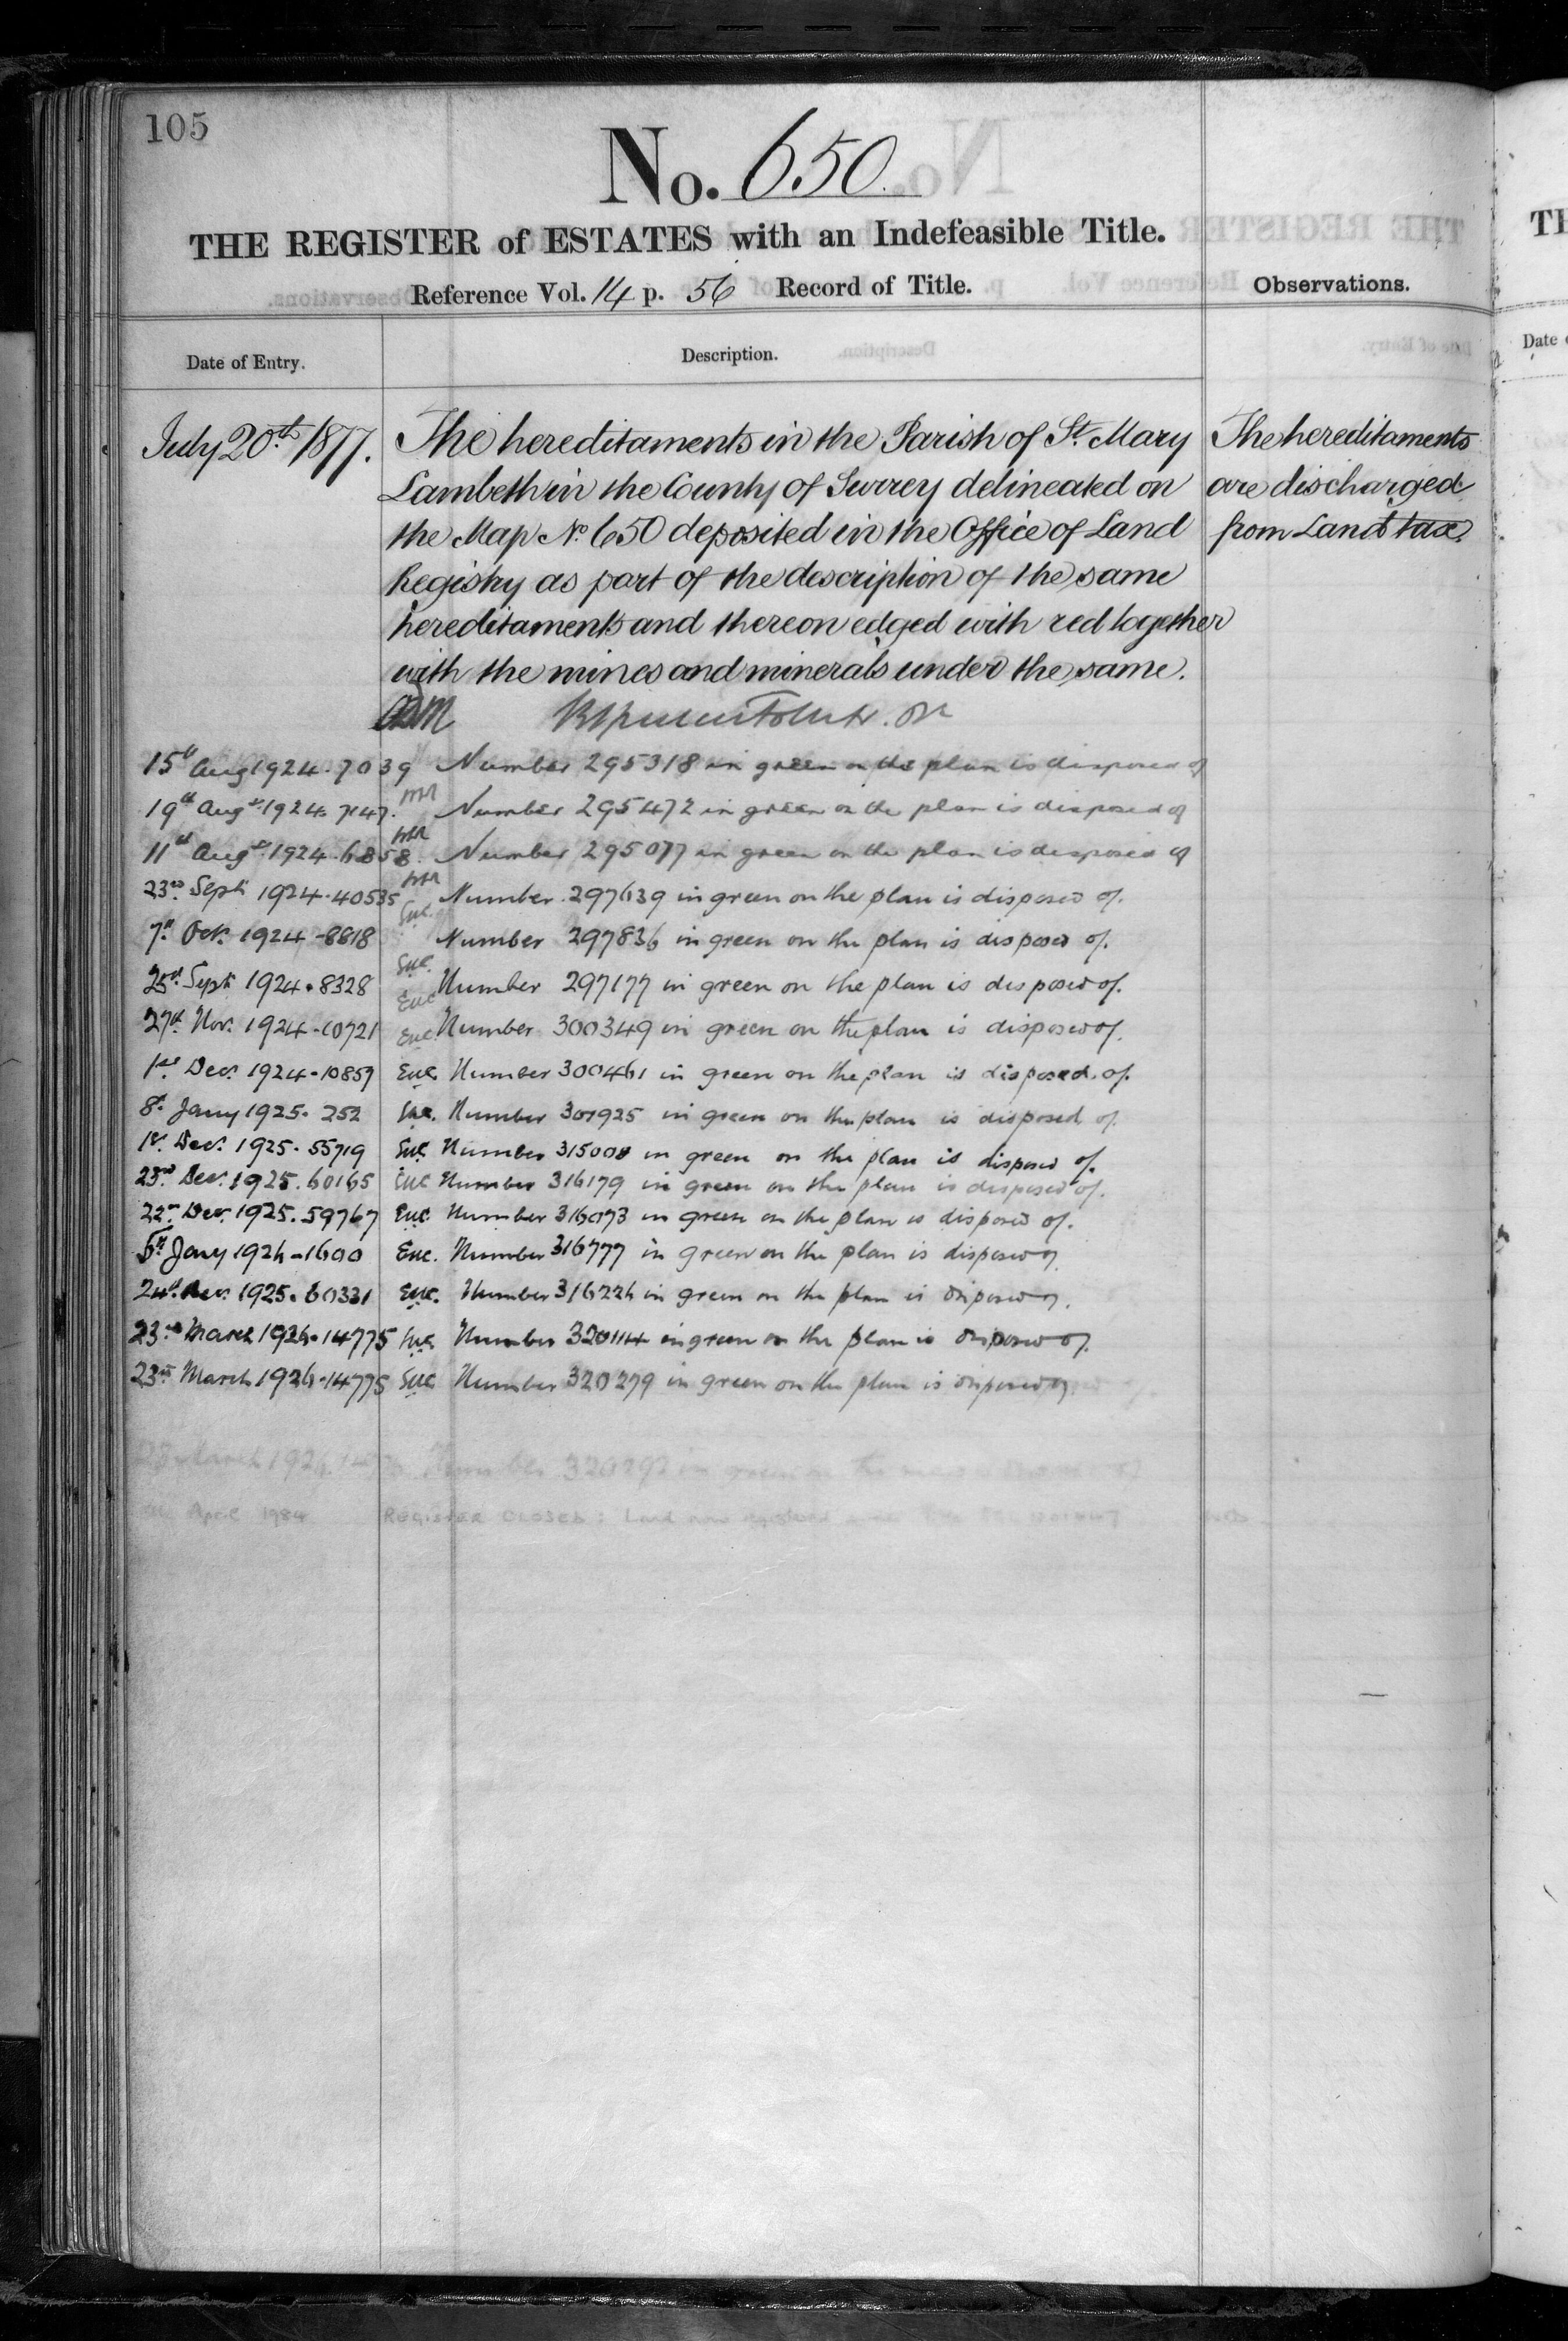 105
No. 650
THE REGISTER of ESTATES with an Indefeasible Title.
Reference Vol. 14 p. 56 Record of Title.
Observations.
Date of Entry.
Description.
July 20th 1877. The hereditaments in the Parish of St. Mary
Lambeth in the County of Surrey delineated on
the Map No. 650 deposited in the Office of Land
Registry as part of the description of the same
hereditaments and thereon edged with red together
with the mines and minerals under the same.
The hereditaments
are discharged
from Land tax.
15th Aug 1924. 7039 Number 295318 in green on the plan is disposed of
19th Augst 1924. 7147. Number 295472 in green on the plan is disposed of
11th Augst 1924. 6858. Number 295077 in green on the plan is disposed of
23rd Sept 1924. 40535 Number 297639 in green on the plan is disposed of.
7th Oct. 1924 - 8818 Number 297836 in green on the plan is disposed of.
25th Sept 1924. 8328 Number 297177 in green on the plan is disposed of.
27th Nov. 1924 - 10721 Number 300349 in green on the plan is disposed of.
1st Dec. 1924 - 10859 Number 300461 in green on the plan is disposed of.
8th Jany 1925. 252 Number 301925 in green on the plan is disposed of.
1st Dec. 1925. 55719 Number 315008 in green on the plan is disposed of.
23rd Dec. 1925. 60165 Number 316179 in green on the plan is disposed of.
22nd Dec. 1925. 59767 Number 316073 in green on the plan is disposed of.
Jany 1926 - 1600 Number 316777 in green on the plan is disposed of
24th Dec. 1925. 60331 Number 316226 in green on the plan is disposed of.
23rd March 1926. 14775 Number 320114 in green on the plan is disposed of.
23rd March 1926. 14775 Number 320279 in green on the plan is disposed of
March 1926 Number 320292 in green on the
April 1984 REGISTER CLOSED: Land now registered
TH
Date